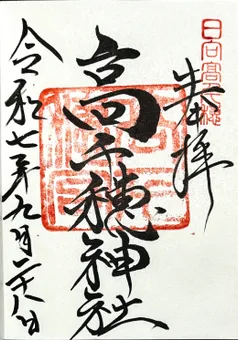 日向髙千穂
奉拝
高千穂神社
令和七年九月二十八日